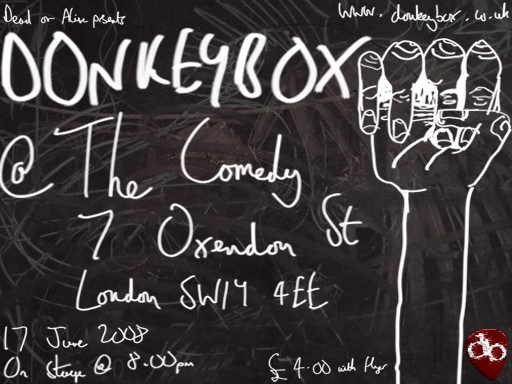 Dead or Alive presents
www.donkeybox.co.uk
DONKEYBOX
@ The Comedy
7 Oxendon St
London SW1Y 4EE
17 June 2008
On Stage @ 8.00pm
£4.00 with flyer
db